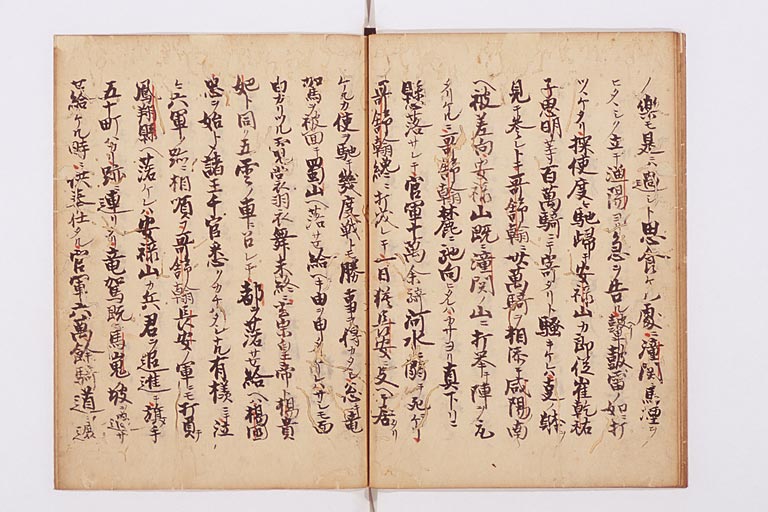 ノ樂モ是ニハ過シト思食ケル處ニ潼関馬湮
ヒタヽシク立テ漁陽ヨリ急ヲ告ル鼙鼓雷ノ如ニ打
ツヽケタリ探使度々馳歸テ安禄山カ郎従崔乾祐
子思明等百萬騎ニテ寄タリト騒キケレハ
見テ参レトテ哥舒翰廿萬騎ヲ相添テ咸陽ノ南
ヘ被差向安禄山既潼関ノ山ニ打挙テ陣ヲ
ケル哥舒翰麓ニ馳向タレハカサヨリ真下リニ
懸落サレテ官軍十萬余騎河水ニ溺テ死ケリ
哥舒翰終ニ打 レテ一日 長安ニ支テ居タリ
ケルカ使ヲ馳テ幾度戦トモ勝事ヲ得カタシ急竜
駕ヲ被回テ蜀山ヘ落サセ給ヘキ由ヲ申タリケレハサレモ面
白カリツル霓裳羽衣舞未終ニ玄宗皇帝ト楊貴
妃ト同ク五雲ノ車ニ召レテ都ヲ落サセ給ヘハ楊國
忠ヲ始ト諸王千官悉ク 有様ニ泣
六軍ノ跡ニ相順ヲ哥舒翰長安ノ軍ニモ打負テ
鳳翔縣ヘ落ケレハ安禄山カ兵君ヲ追進テ旗ノ手
五十町 跡ニ連リ竜駕既ニ馬嵬坡
セ給ケル時ニ供奉仕タル官軍六萬餘騎道